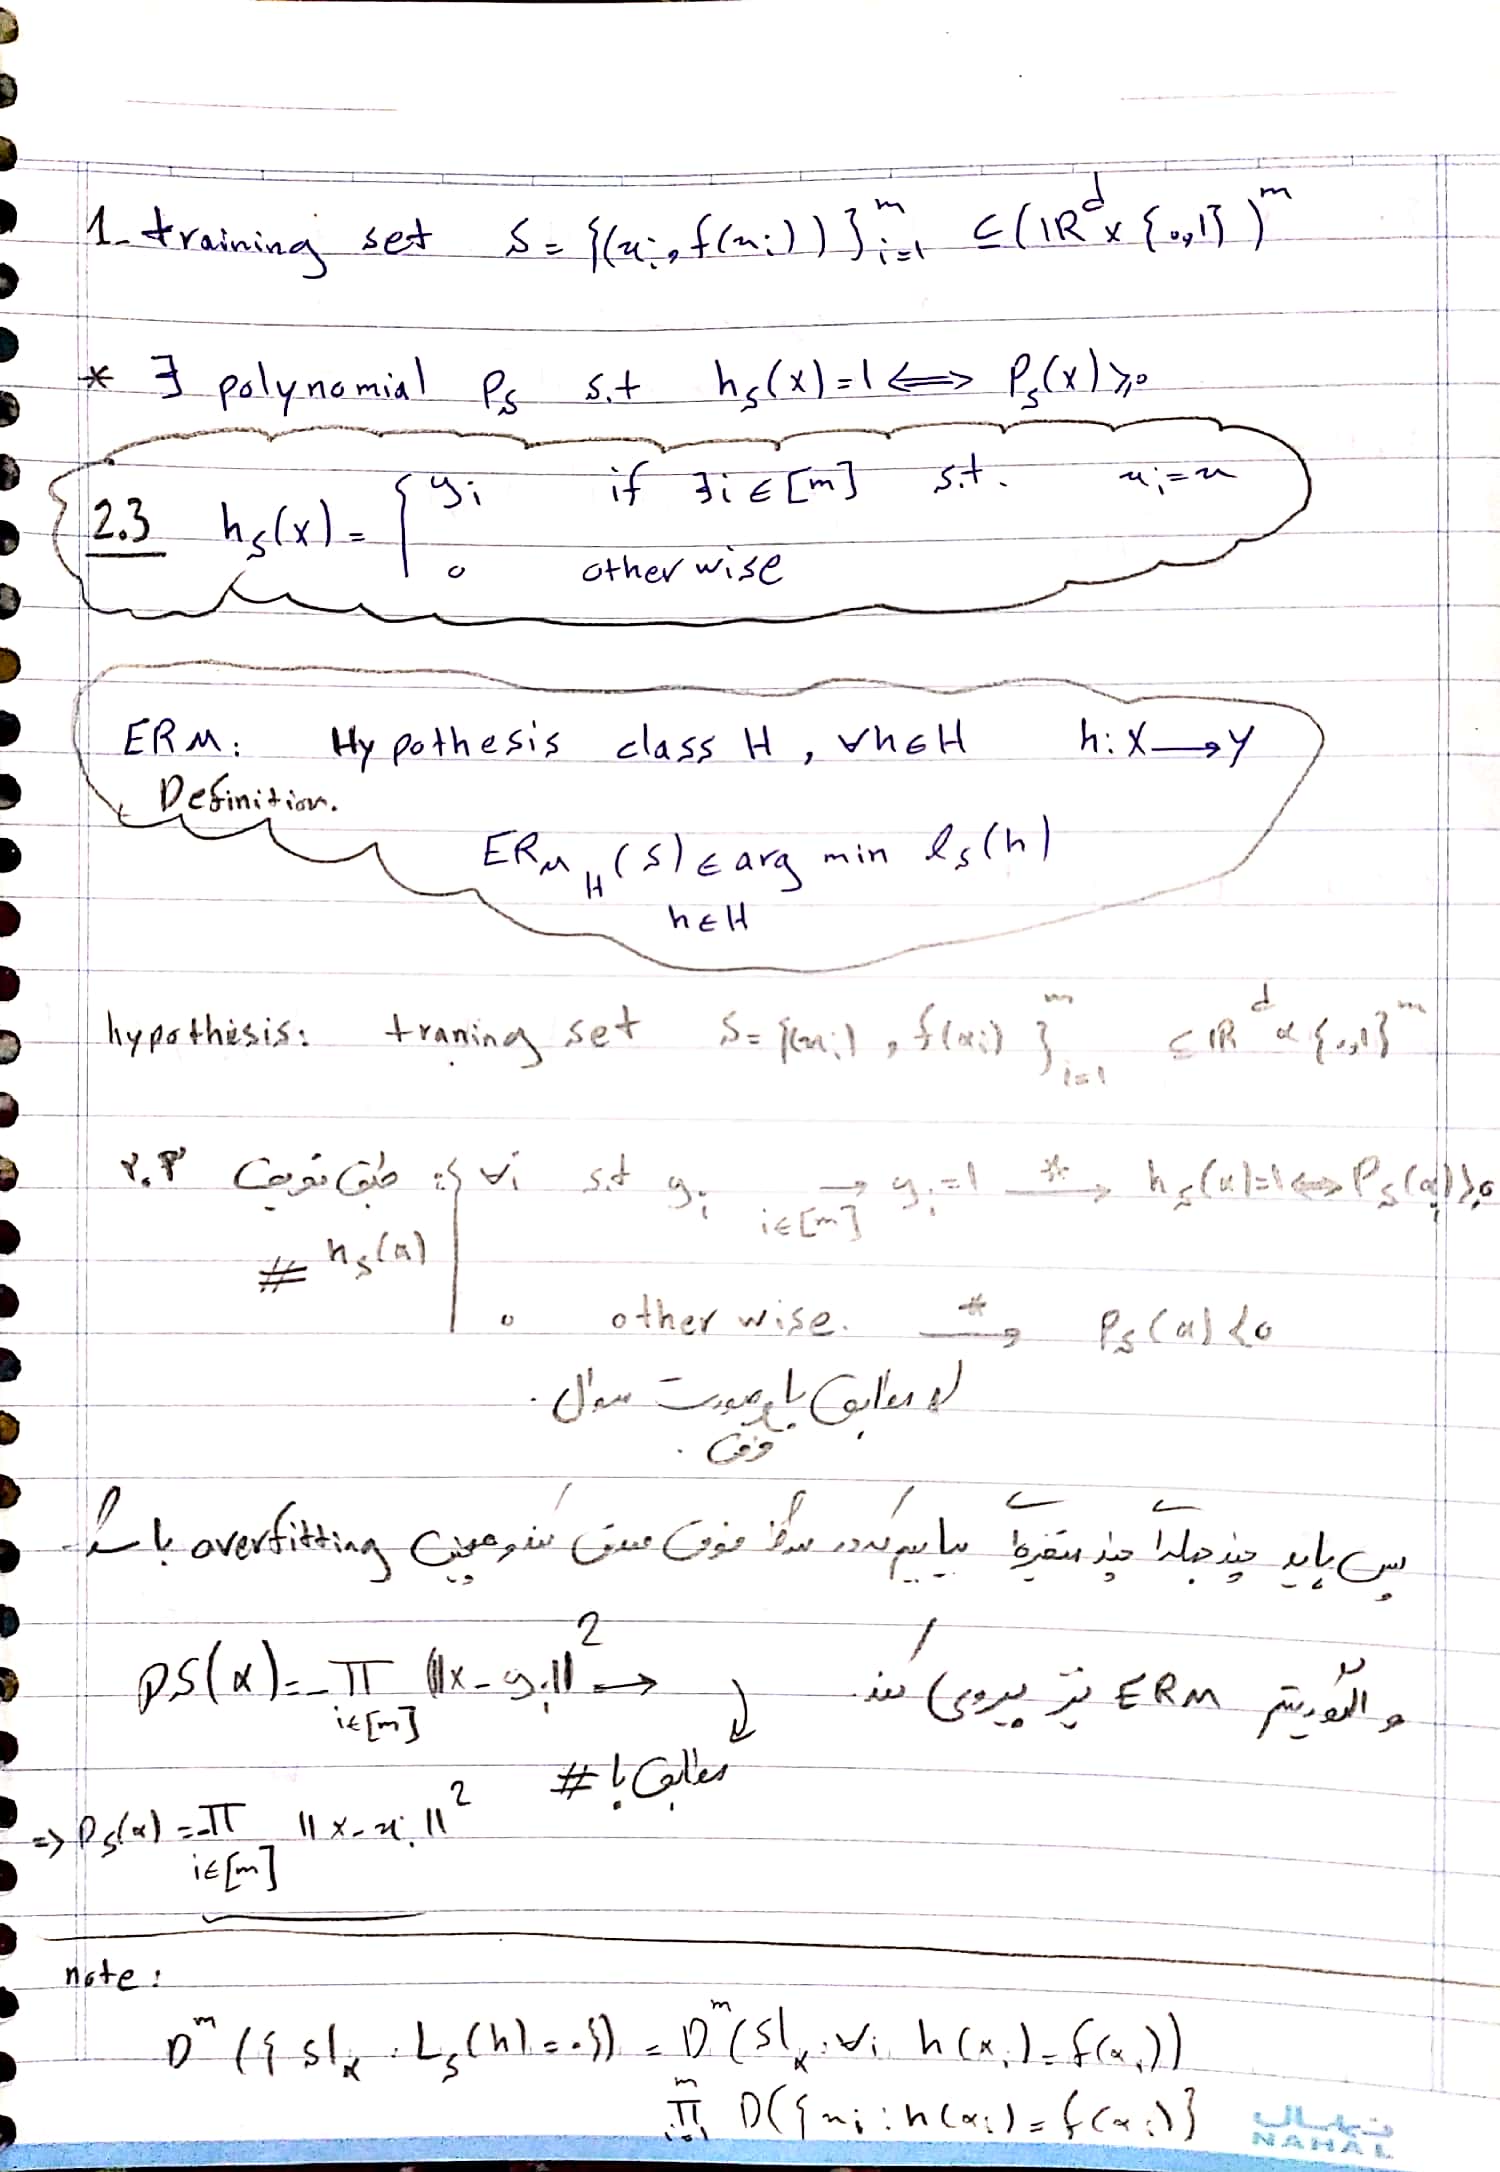 1- training set S = {(xᵢ, f(xᵢ))}ᵐᵢ₌₁ ⊆ (ℝᵈ × {0,1})ᵐ
* ∃ polynomial Pₛ s.t hₛ(x)=1 ⟺ Pₛ(x) ≥ 0
2.3 hₛ(x) = { yᵢ if ∃i ∈ [m] s.t. xᵢ = x
0 otherwise
ERM: Hypothesis class H, ∀h∈H h: X → Y
Definition.
ERM_H (S) ∈ arg min lₛ(h)
h∈H
hypothesis: traning set S = {(xᵢ), f(xᵢ) }ᵐᵢ₌₁ ⊆ ℝᵈ × {0,1}ᵐ
۲.۳ طبق تعریف : { ∀i s.t yᵢ → i∈[m] yᵢ=1 *→ hₛ(x)=1 ⟺ Pₛ(x) ≥ 0
# hₛ(x)
0 otherwise. *→ Pₛ(x) < 0
مطابق با صورت سوال .
فوق .
پس باید چندجمله‌ای چند متغیره‌ای بیابیم که در شرط فوق صدق کند و همچنین overfitting با
PS(x) = -∏ i∈[m] ||x - yᵢ||² → و الگوریتم ERM نیز پیروی کند.
مطابق با #
⇒ Pₛ(x) = -∏ i∈[m] ||x - xᵢ||²
note:
Dᵐ({S|ₓ : Lₛ(h) = 0}) = Dᵐ(S|ₓ : ∀i h(xᵢ) = f(xᵢ))
∏ᵐᵢ₌₁ D({xᵢ : h(xᵢ) = f(xᵢ)}
نهال
NAHAL